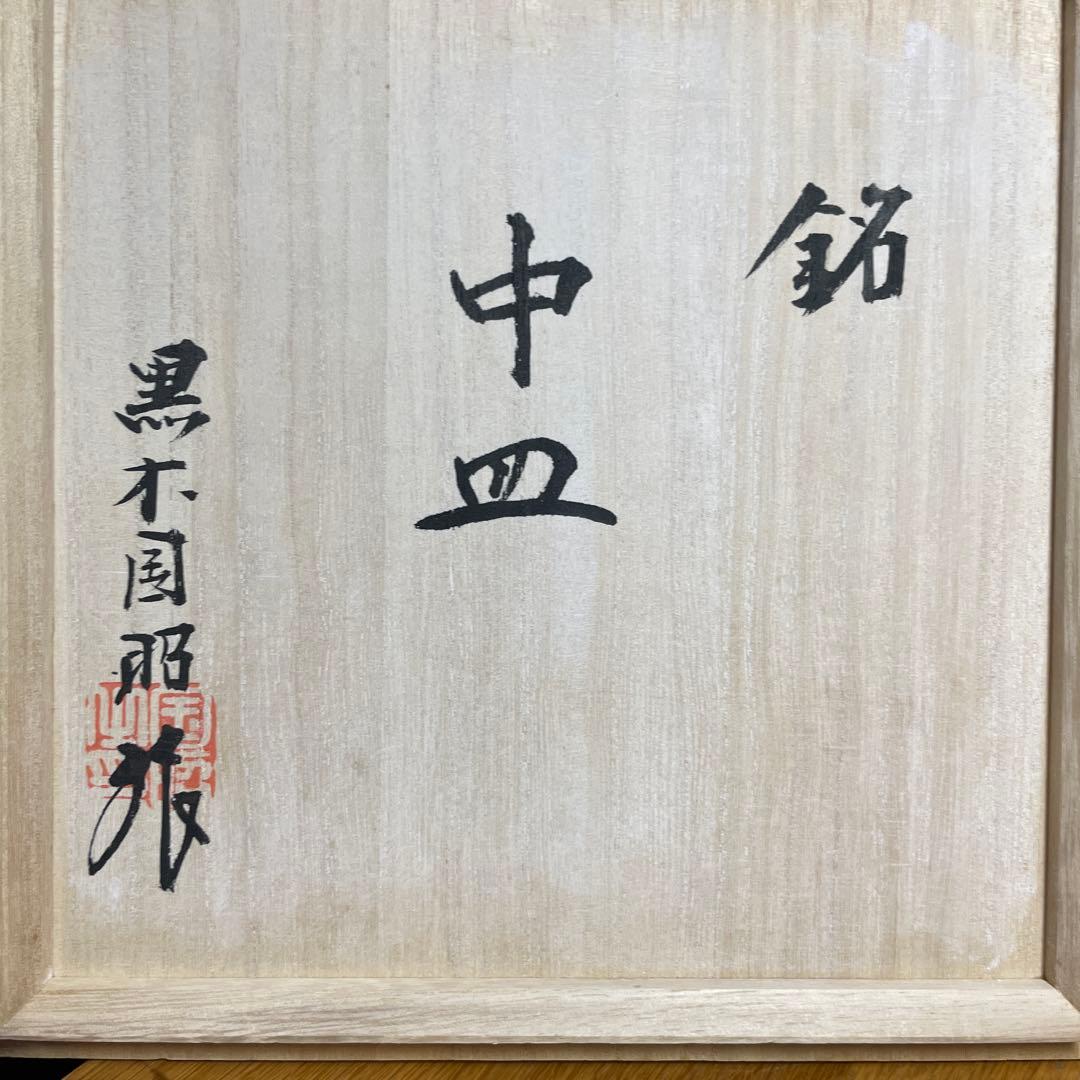 銘
中皿
黒木国昭